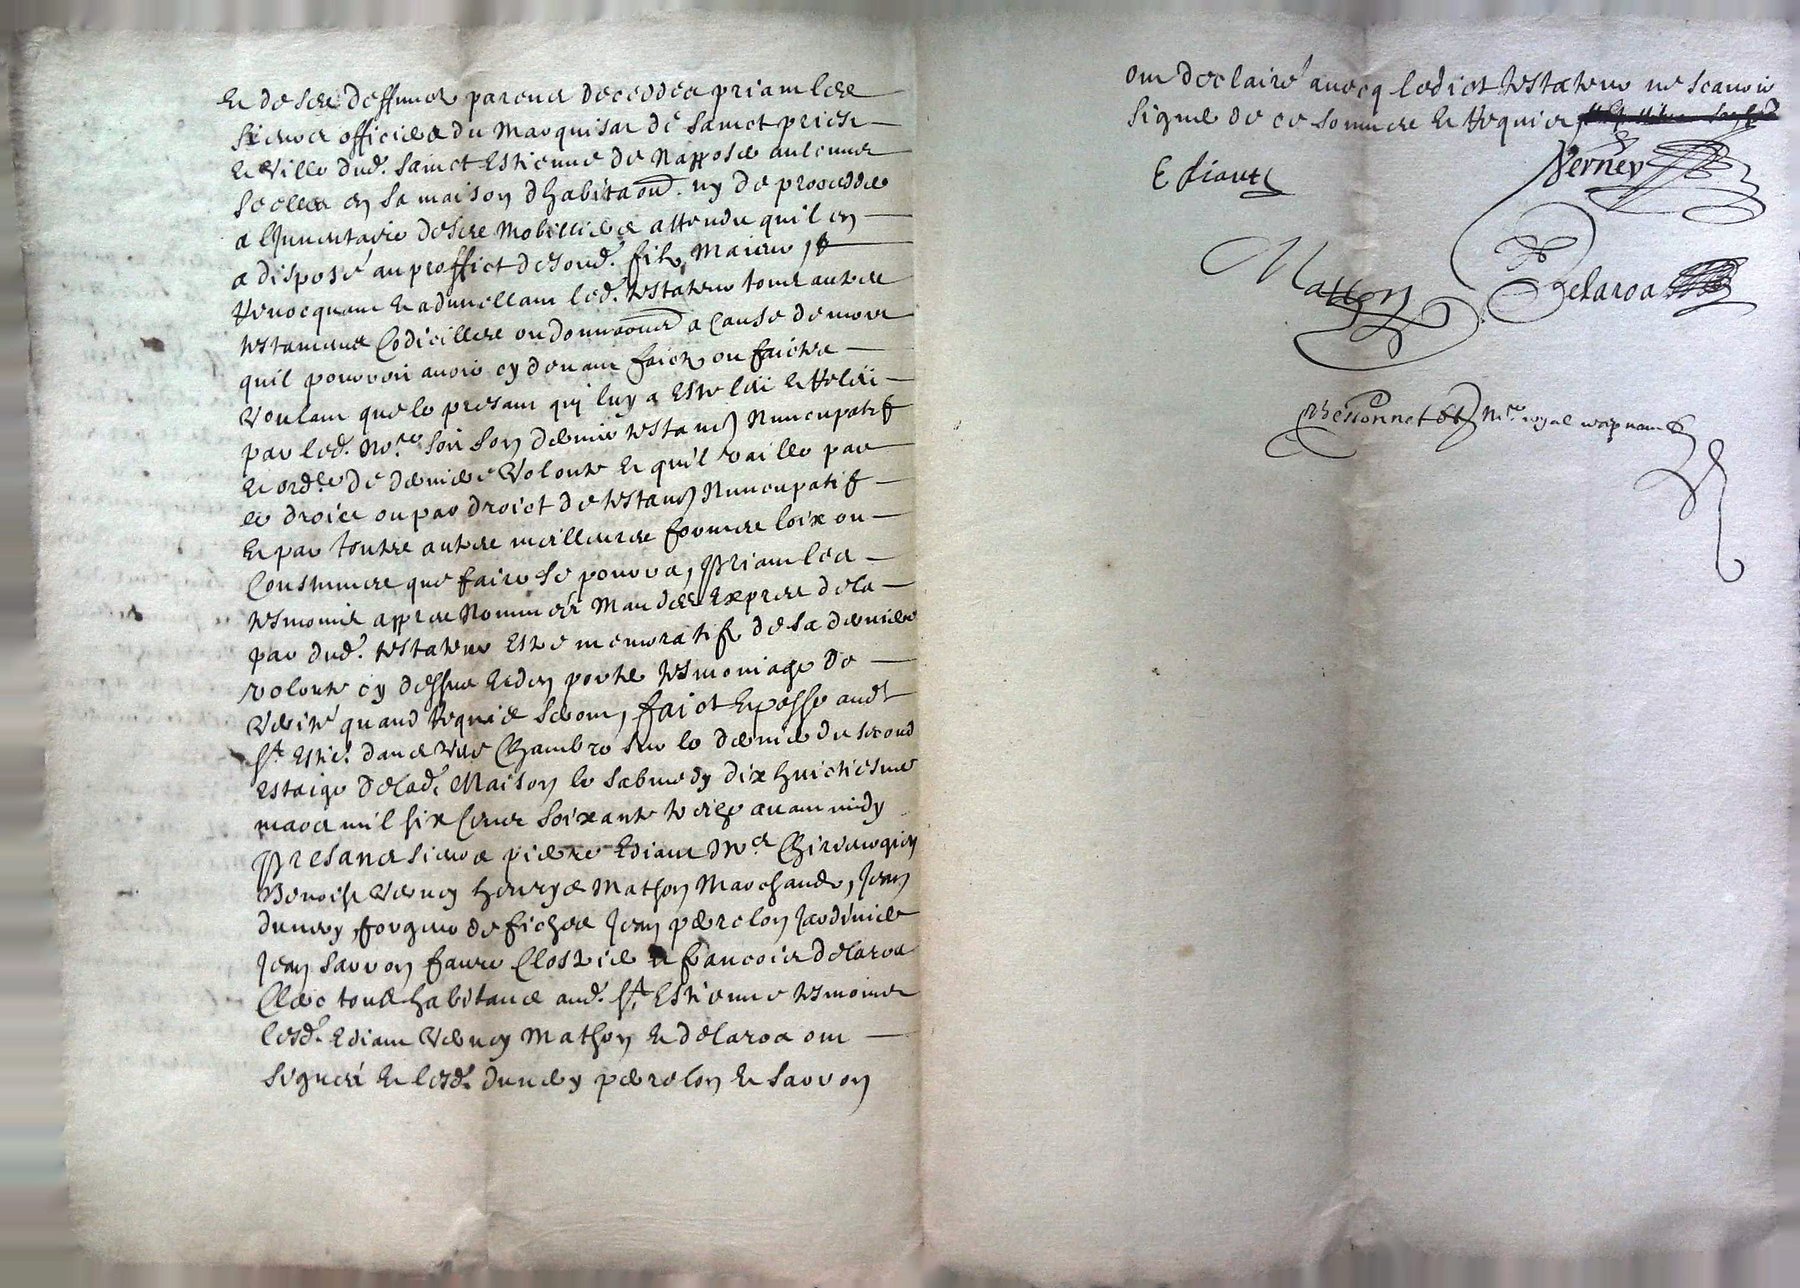 Et de ses deffuncts parents decedes priant les
sieurs officiers du Marquisat de Sainct priest
et ville dud. Sainct Estienne de Napposer aulcuns
scelles en sa maison d'habitaon. ny de proceder
a l'Inventaire de ses mobilliers attendu quil en
a disposé au proffict de sond. filz, Maure,
Revocquant et adnullant led. testateur tous autres
testamens Codicilles ou donnaons a Cause de mort
quil pourroit avoir cy devant faicts ou faictes
Voulant que le present qui luy a esté leü et releü
par led. No.re soit son dernier testamen Nuncupatif
et ord.re de derniere Volonté et quil vaille par
ce droict ou par droict de testamen Nuncupatif
Et par toutes autres meilleures formes loix ou
Coustumes que faire se pourra, Priant les
tesmoins appres Nommés Mandés Expres de la
par dud. testateur estre memoratifz de sa derniere
volonté cy dessus et den porter tesmoniage de
Verité quand requis seront, faict et passé aud.t
S.t Esti.e dans une Chambre sur le dernier du second
estaige de lad. Maison le sabmedy dix huictiesme
mars mil six Cents soixante treize avant midy
Presans sieurs pierre Ediant M.e Chirurgien
Benoist Verney henrys Mathon Marchands, Jean
Durey, forgeur de fiches Jean perrolon Jardinier
Jean Sarron faure Clostrier et francois delaroa
Clerc tous habitans aud. S.t Estienne tesmoins
lesd. Ediant Verney Mathon et delaroa ont
signés et lesd. Durey perrolon et Sarron
ont declairé avecq ledict testateur ne scavoir
signer de ce sommes et requis
Ediant
Verney
Mathon
Delaroa
Chessonnet N.re royal recepvant